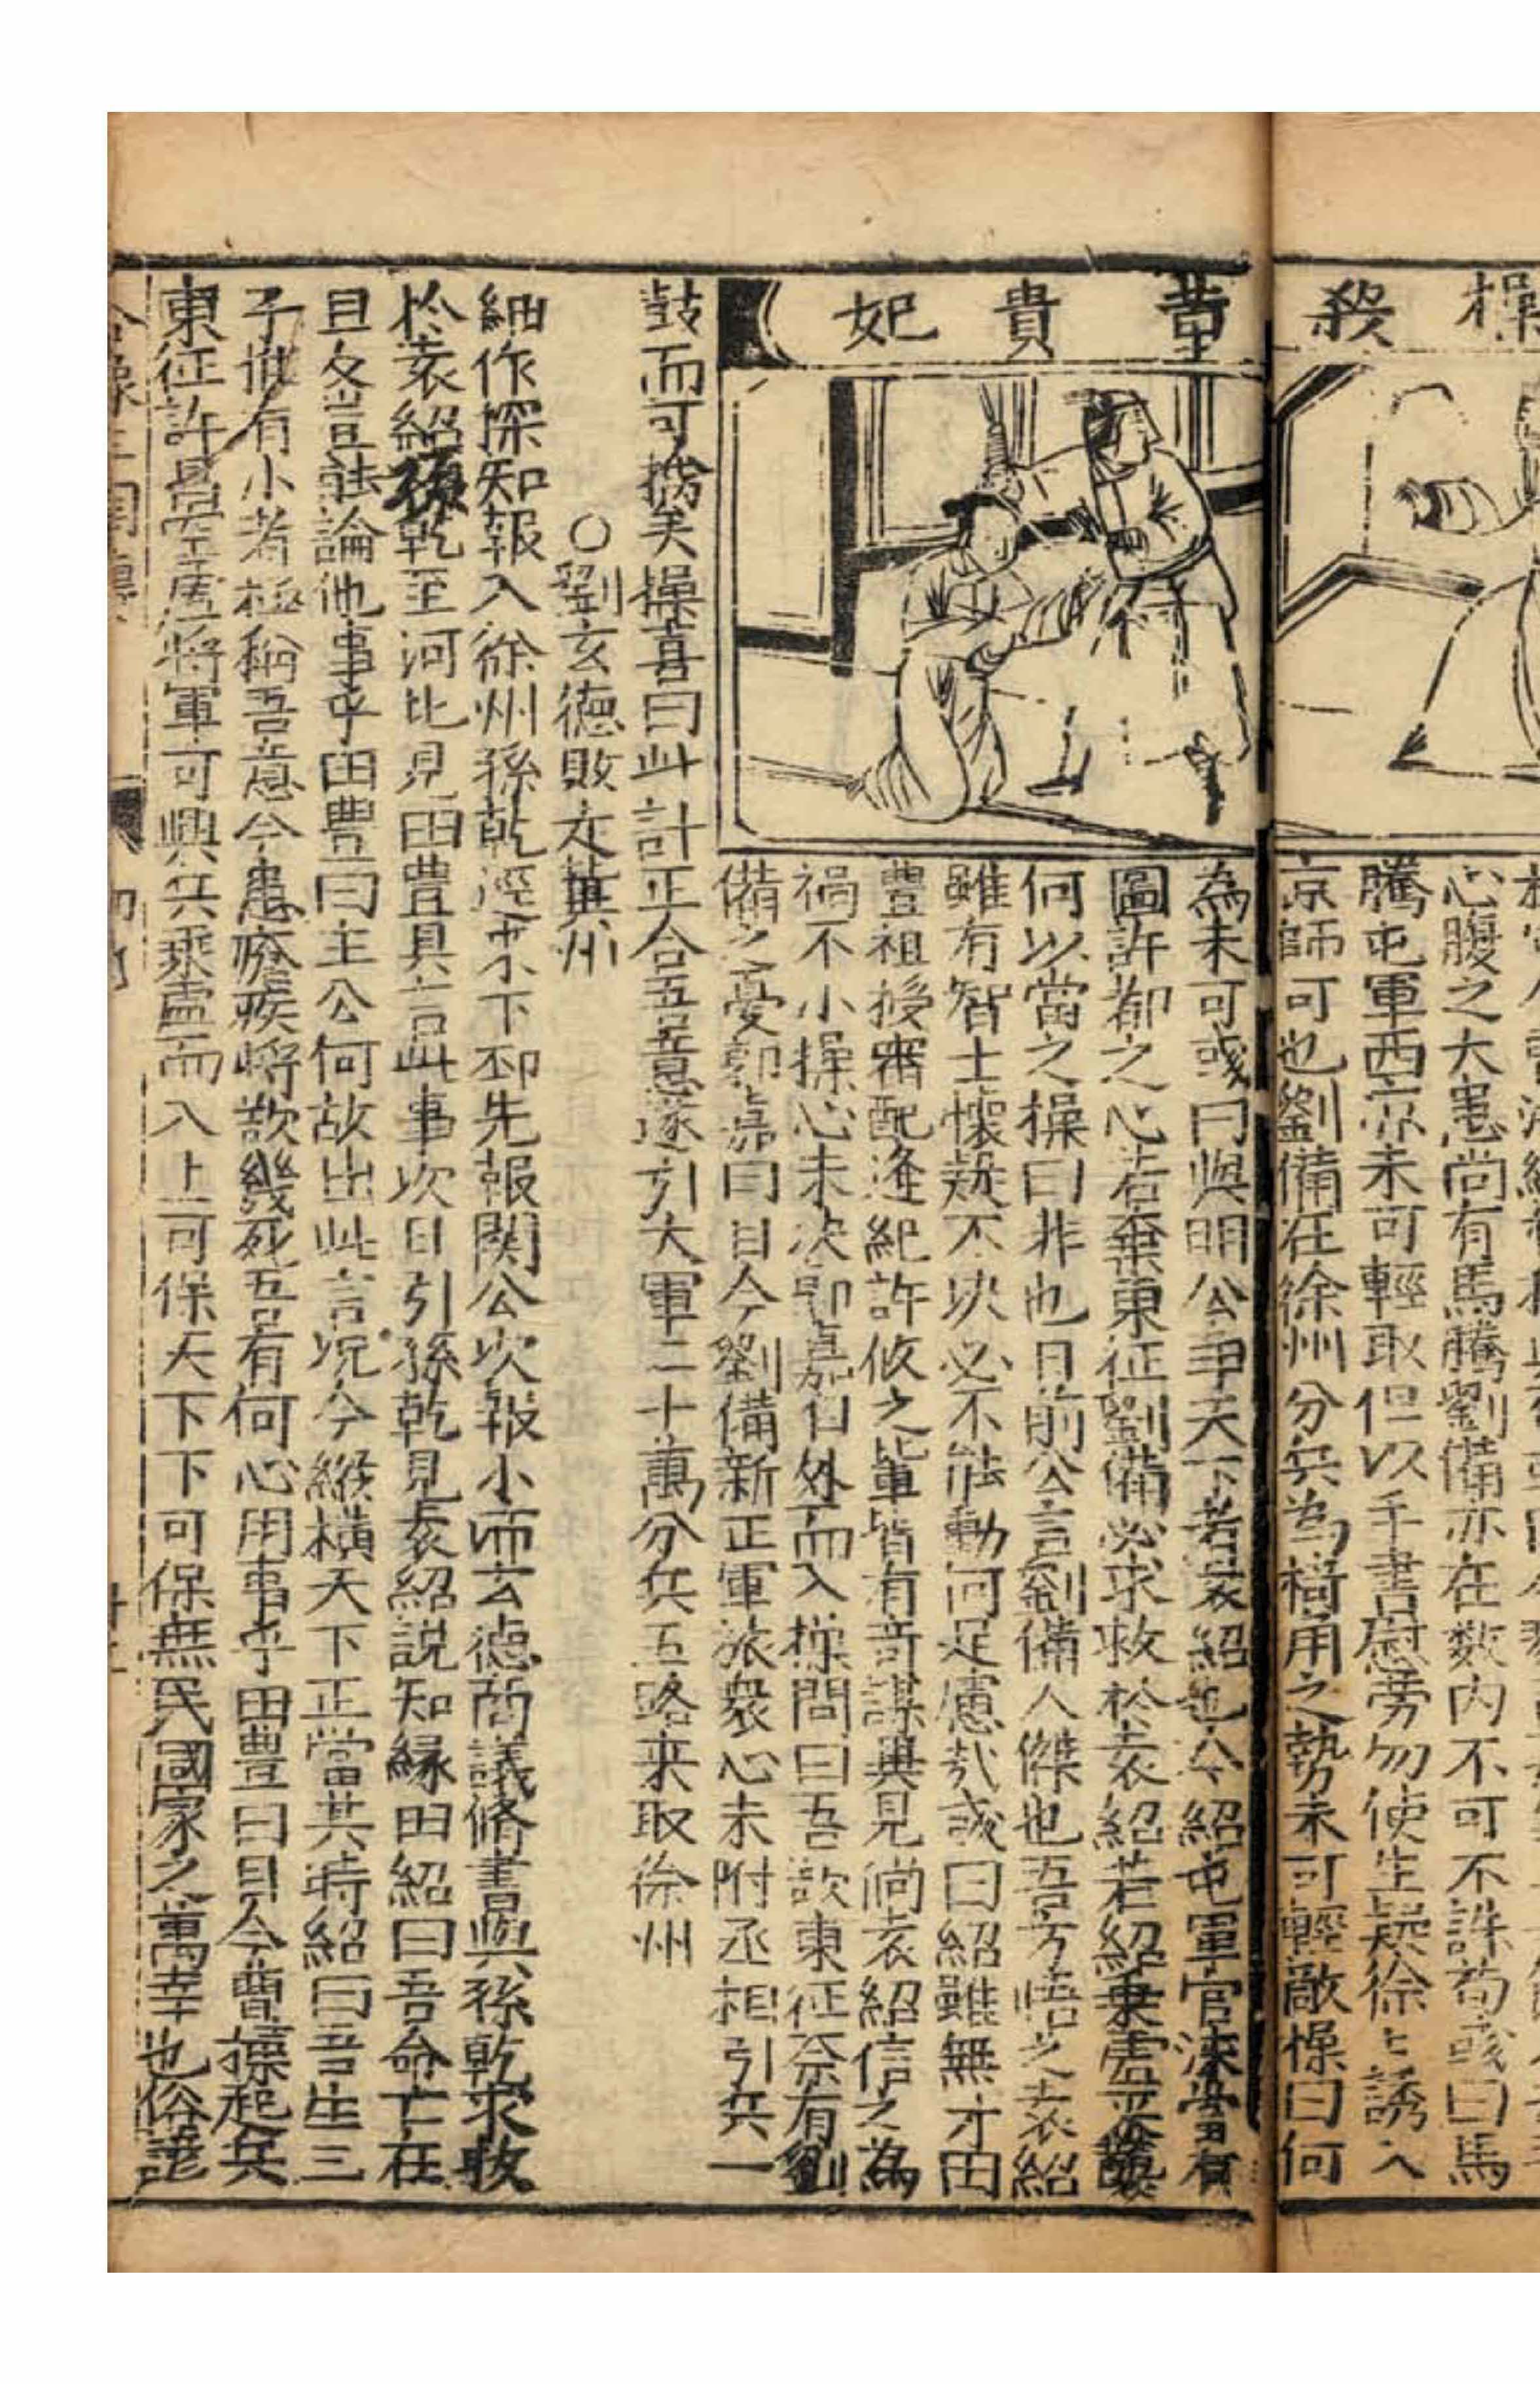 操殺董貴妃
心腹之大患尚有馬騰劉備亦在数内不可不誅荀彧曰馬
騰屯軍西亦未可輕取但以手書慰旁勿使生疑徐上誘入
京師可也劉備在徐州分兵為犄角之勢未可輕敵操曰何
為未可彧曰與明公爭天下者袁紹也今紹屯軍官渡常有
圖許都之心若棄東征劉備必求救於袁紹若紹乗虚
何以當之操曰非也日前公言劉備人傑也吾方悟之袁紹
雖有智士懷疑不决必不能動何足慮哉彧曰紹雖無才田
豊祖授審配逢紀許攸之輩皆有奇謀與見尚袁紹信之為
禍不小操心未决郭嘉自外而入操問曰吾欲東征奈有劉
備之憂郭嘉曰目今劉備新正軍旅衆心未附丞相引兵一
鼓而可擒矣操喜曰此計正合吾意遂引大軍二十萬分兵五路来取徐州
○劉玄德敗走冀州
細作探知報入徐州孫乾逕下邳先報関公次報小沛玄德商議脩書與孫乾求救
於袁紹孫乾至河北見田豊具言此事次日引孫乾見袁紹説知縁由紹曰吾命亡在
旦夕豈能論他事乎田豊曰主公何故出此言况今縱横天下正當其時紹曰吾生三
子惟有小者極稱吾意今患瘡疾將欲幾死吾有何心用事乎田豊曰目今曹操起兵
東征許昌空虚將軍可興兵乘虚而入上可保天下下可保無民國家之萬幸也俗諺